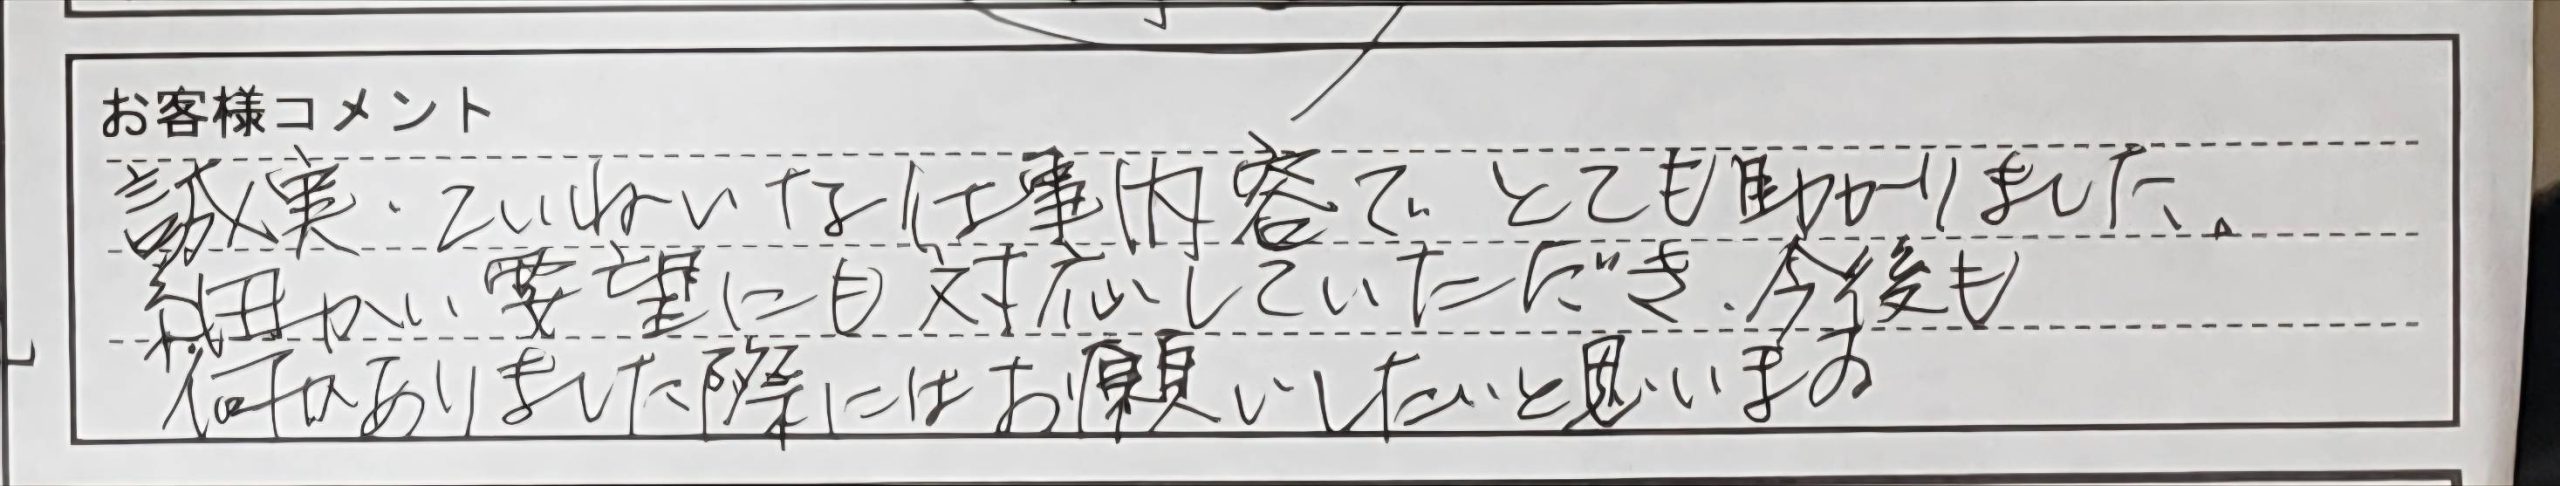 お客様コメント
誠実・ていねいな仕事内容で とても助かりました。
細かい要望にも対応していただき、今後も
何かありました際にはお願いしたいと思います